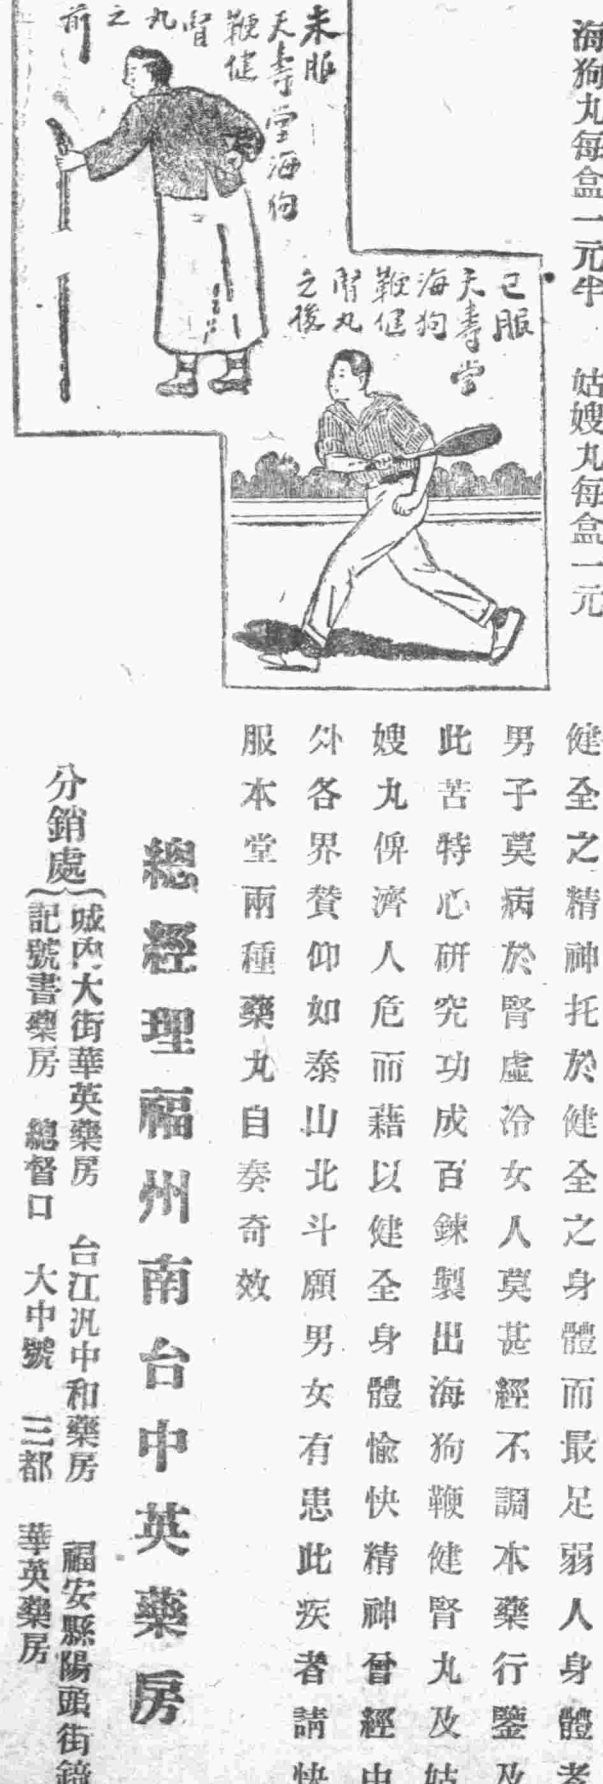 海狗丸每盒一元半 姑嫂丸每盒一元
未服
天壽堂海狗
鞭健
腎
丸
之
前
已服
天壽堂
海狗
鞭健
腎丸
之後
健全之精神托於健全之身體而最足弱人身體者
男子莫病於腎虛冷女人莫甚經不調本藥行鑒及
此苦特心研究功成百鍊製出海狗鞭健腎丸及姑
嫂丸俾濟人危而藉以健全身體愉快精神曾經中
外各界贊仰如泰山北斗願男女有患此疾者請快
服本堂兩種藥丸自奏奇效
總經理福州南台中英藥房
分銷處
城內大街華英藥房 台江汎中和藥房 福安縣陽頭街鏡
記號書藥房 總督口 大中號 三都 華英藥房